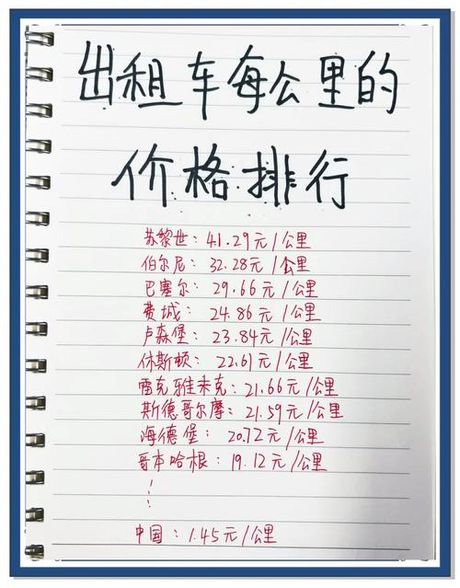 出租车每公里的
价格排行
苏黎世：41.29元/公里
伯尔尼：32.28元/公里
巴塞尔：29.66元/公里
费城：24.86元/公里
卢森堡：23.84元/公里
休斯顿：22.61元/公里
雷克雅未克：21.66元/公里
斯德哥尔摩：21.59元/公里
海德堡：20.72元/公里
哥本哈根：19.12元/公里
⋮
中国：1.45元/公里